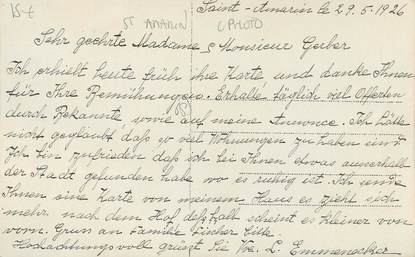 15+
ST AMARIN
(PHOTO)
Saint-Amarin le 29.5.1926
Sehr geehrte Madame & Monsieur Gerber
Ich erhielt heute früh ihre Karte und danke Ihnen
für Ihre Bemühungen. Erhalte täglich viel Offerten
durch Bekannte sowie auf meine Annonce. Ich hätte
nicht geglaubt daß so viel Wohnungen zu haben sind
Ich bin zufrieden daß ich bei Ihnen etwas ausserhalb
der Stadt gefunden habe wo es ruhig ist. Ich sende
Ihnen eine Karte von meinem Haus es zieht sich
mehr nach dem Hof, deßhalb scheint es kleiner von
vorn. Gruss an Familie Fischer
Hochachtungsvoll grüsst Sie Vve. L. Emmenecker